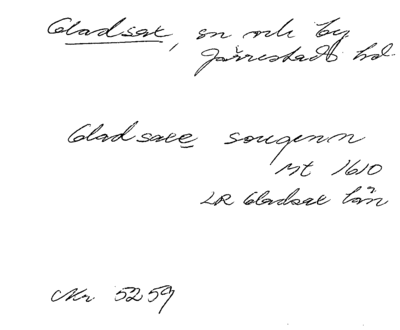 Gladsax, sn och by
Järrestads hd
Gladsaxe sougenn
Mt 1610
LR Gladsax län
Nr 5259